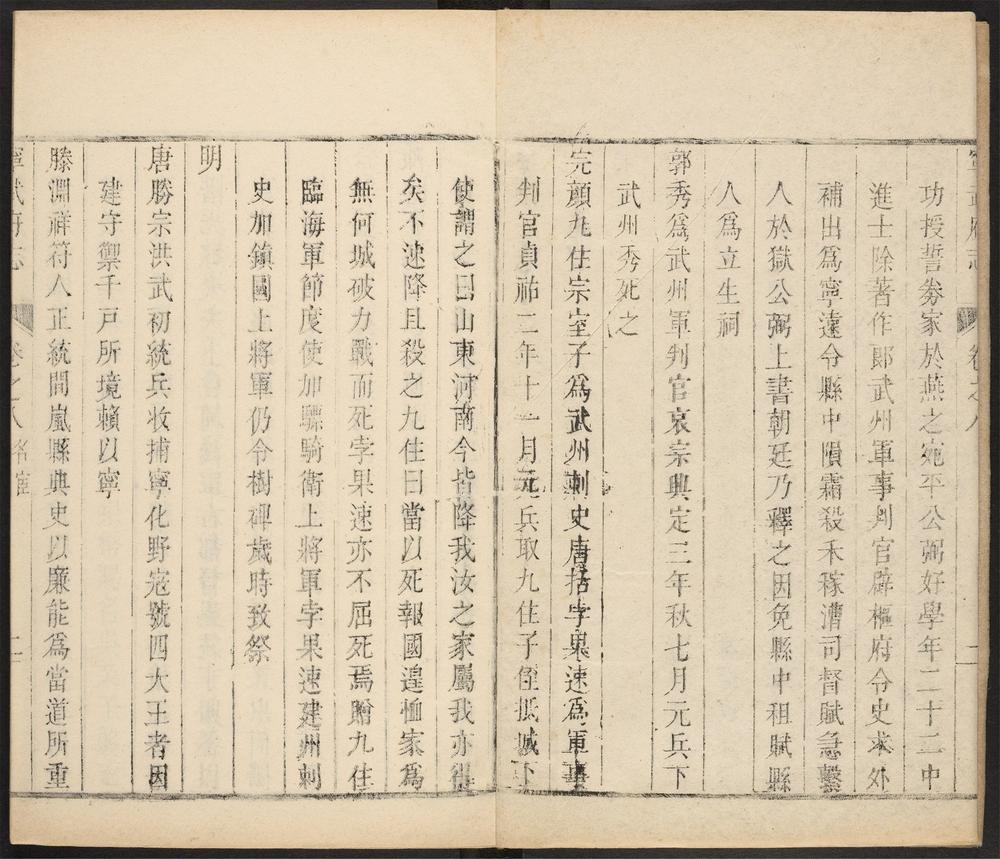 寧武府志 卷之八 二
功授誓劵家於燕之宛平公弼好學年二十二中
進士除著作郎武州軍事判官辟樞府令史求外
補出爲寧遠令縣中隕霜殺禾稼漕司督賦急繫
人於獄公弼上書朝廷乃釋之因免縣中租賦縣
人爲立生祠
郭秀爲武州軍判官哀宗興定三年秋七月元兵下
武州秀死之
完顏九住宗室子爲武州刺史唐括孛果速爲軍事
判官貞祐二年十一月元兵取九住子侄抵城下
使謂之曰山東河南今皆降我汝之家屬我亦得
矣不速降且殺之九住曰當以死報國遑恤家爲
無何城破力戰而死孛果速亦不屈死焉贈九住
臨海軍節度使加驃騎衛上將軍孛果速建州刺
史加鎮國上將軍仍令樹碑歲時致祭
明
唐勝宗洪武初統兵收捕寧化野寇號四大王者因
建守禦千戸所境賴以寧
滕淵祥符人正統間嵐縣典史以廉能爲當道所重
寧武府志 卷之八 名宦 二